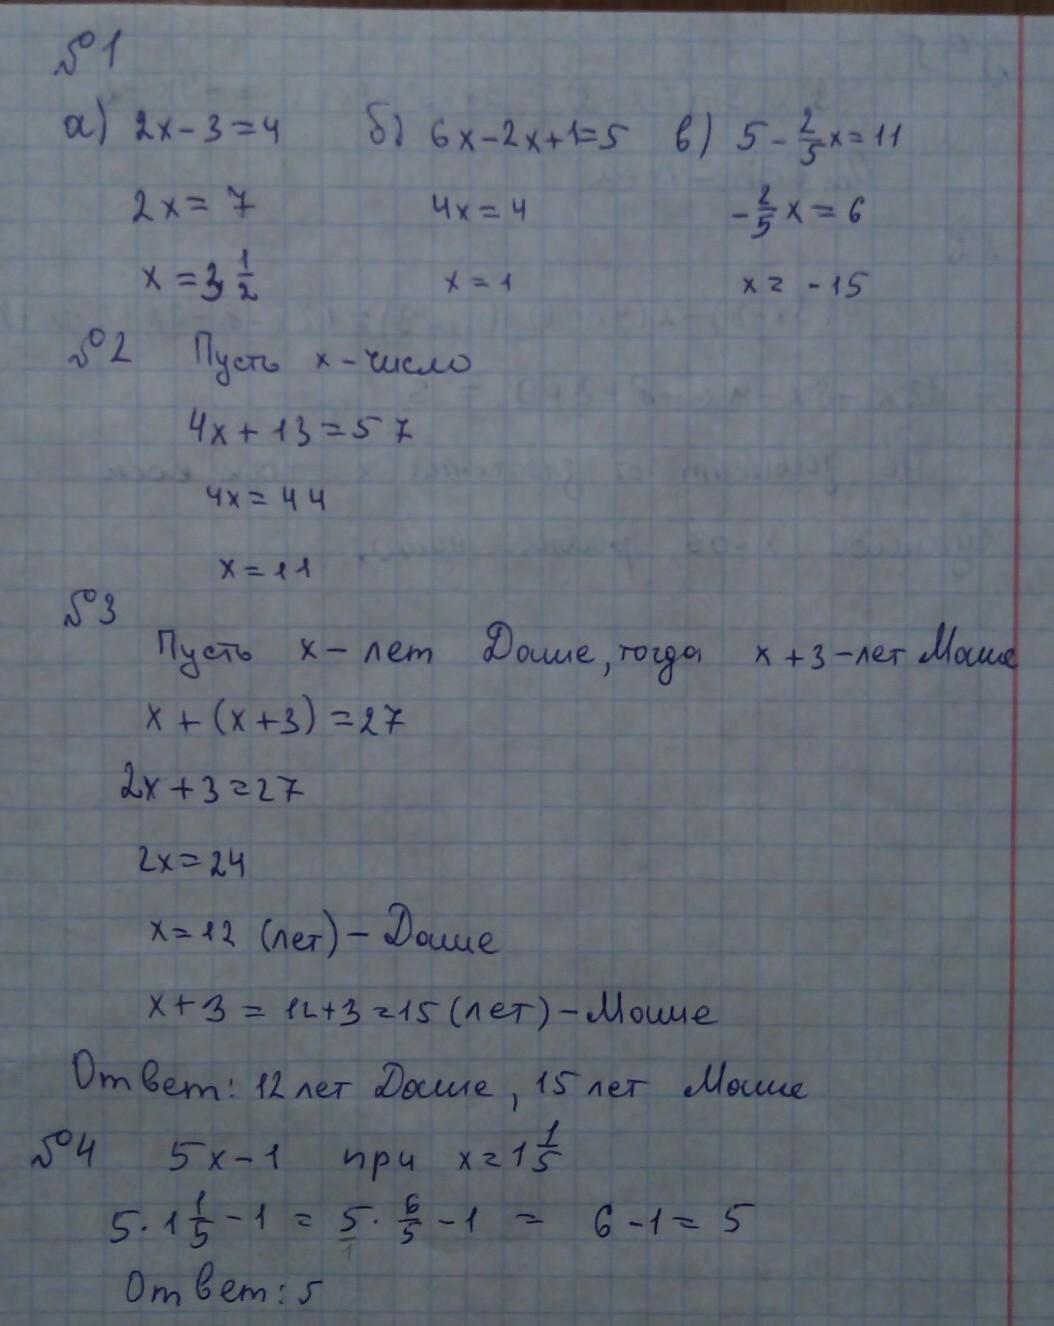 №1
а) 2x-3=4 б) 6x-2x+1=5 в) 5-2/5x=11
2x=7 4x=4 -2/5x=6
x=3 1/2 x=1 x=-15
№2 Пусть x-число
4x+13=57
4x=44
x=11
№3
Пусть x-лет Даше, тогда x+3-лет Маше
x+(x+3)=27
2x+3=27
2x=24
x=12 (лет)-Даше
x+3=12+3=15 (лет)-Маше
Ответ: 12 лет Даше, 15 лет Маше
№4 5x-1 при x=1 1/5
5·1 1/5-1=5·6/5-1=6-1=5
Ответ: 5